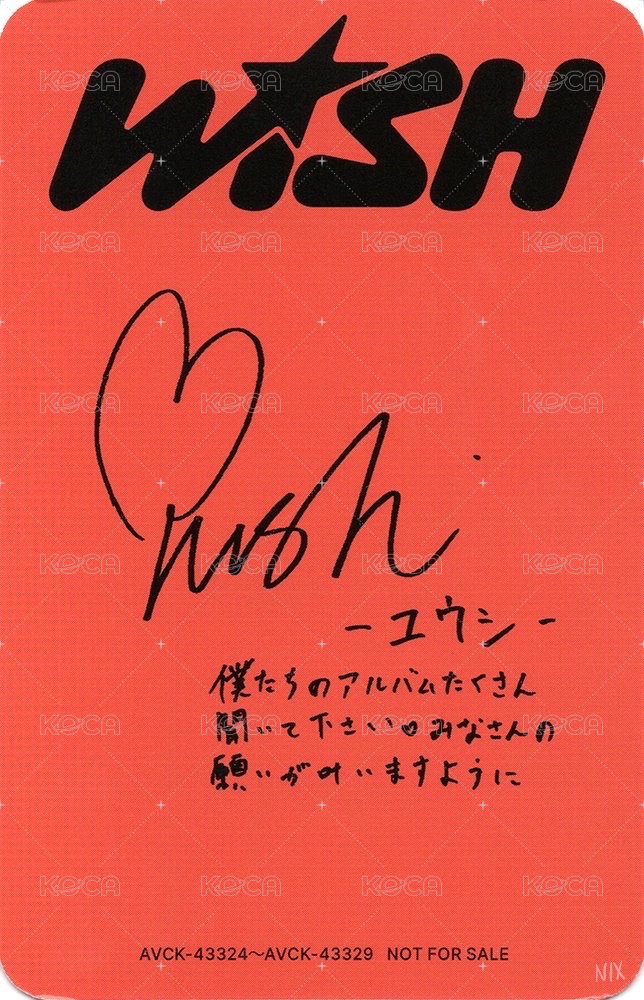 WiSH
Yushi
-ユウシ-
僕たちのアルバムたくさん
聞いて下さい♡みなさんの
願いが叶いますように
AVCK-43324～AVCK-43329 NOT FOR SALE
NIX
KOCA